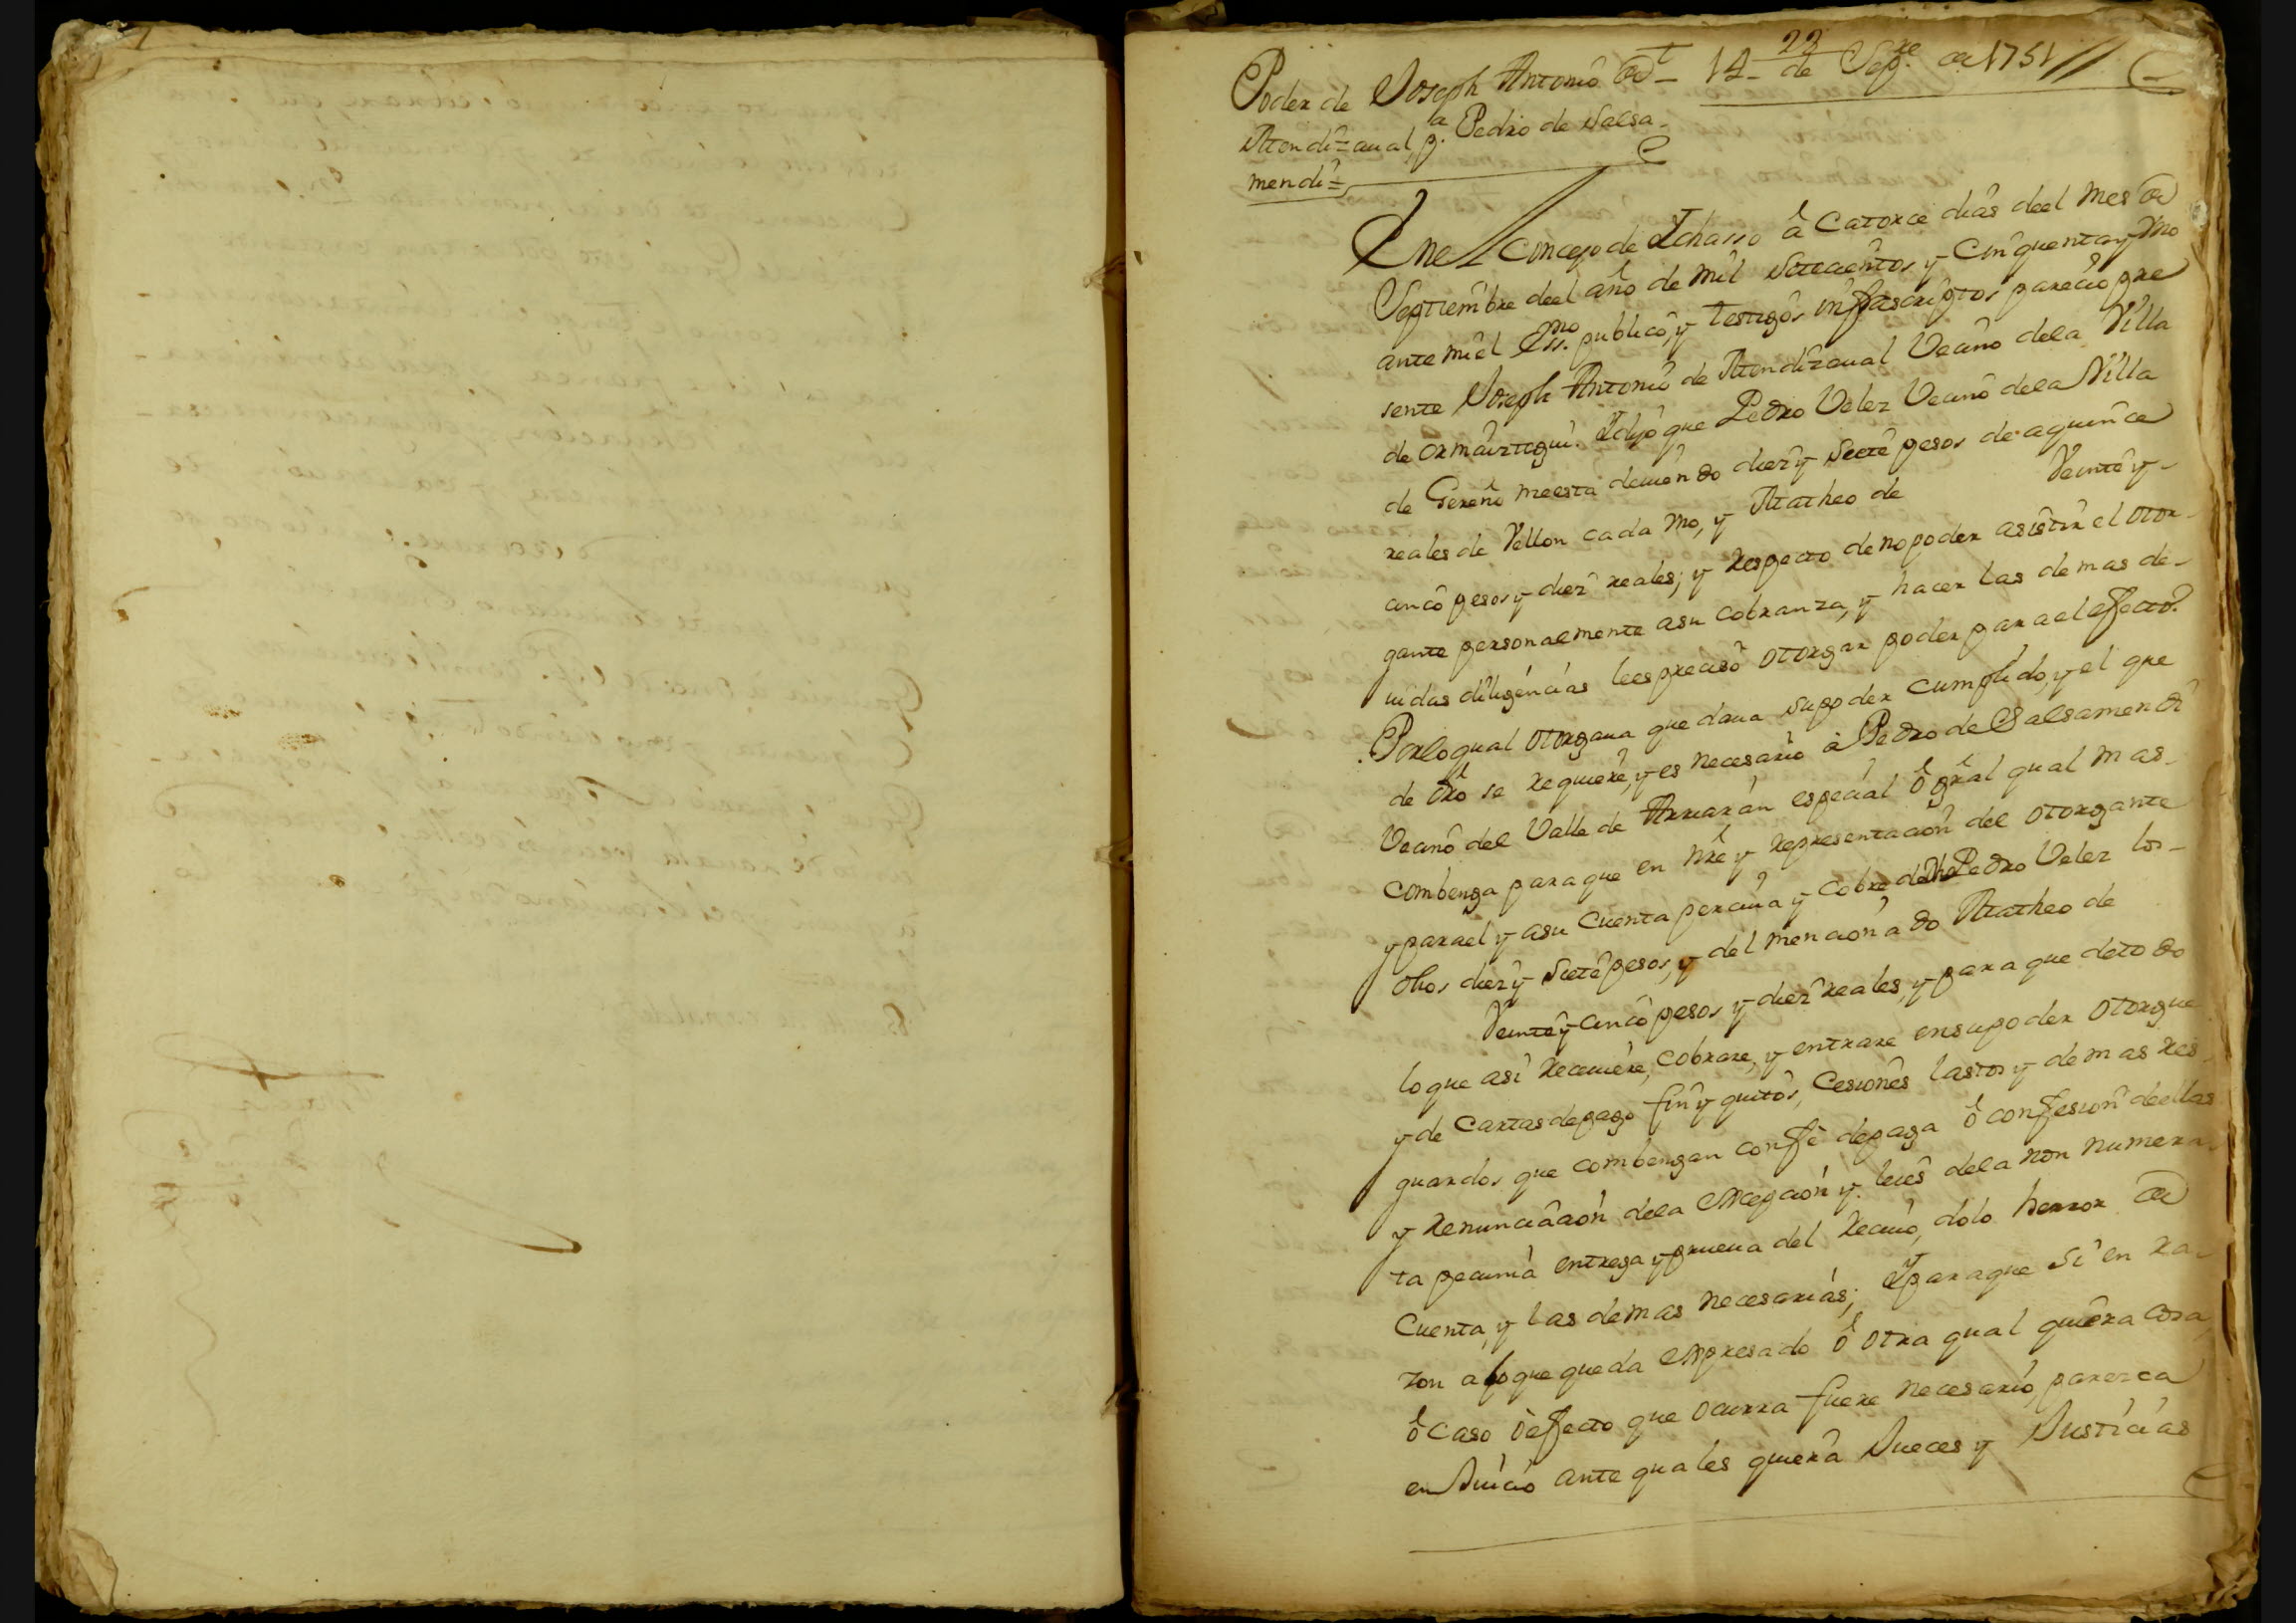 22
Poder de Joseph Antonio de 14 de Sepre. de 1751
Mendizaual pa. Pedro de Salsa-
mendi =
En el Concejo de Ichasso â Catorce dias deel mes de
Septiembre deel año de mil Setecientos y Cinquenta y Vno
ante mi el Essno. publico, y testigos infrascriptos pareciò pre
sente Joseph Antonio de Mendizaual Vecino dela Villa
de ormaiztegui. Y dijo que Pedro Velez Vecino dela Villa
de Gereño meesta deuiendo diez y Siete pesos de aquince
reales de Vellon cada Vno, y Matheo de Veinte y-
cinco pesos y diez reales; y Respecto de no poder asistir el otor-
gante personalmente asu Cobranza, y hacer las demas de-
uidas diligencias lees preciso otorgar poder para el efecto.
Porloqual otorgaua que daua supoder cumplido, y el que
de dro se requiere, y es necesario à Pedro de Salsamendi
Vecino del Valle de Arriaràn especial ô gral qual mas-
combenga paraque en nre y representacion del otorgante
y parael y asu Cuenta perciua y Cobre de dho Pedro Velez los-
dhos diez y Siete pesos, y del mencionado Matheo de
Veinte y cinco pesos y diez reales, y para que detodo
loque asi Receuiere, Cobrare, y entrare ensupoder otorgue
y de Cartas de pago finy quitos, Cesiones lastos y demas res-
guardos que combengan confè depaga ô confesion deellas
y Renunciacion dela excepcion y leies dela non numera-
ta pecunia entrega y prueua del Reciuo, dolo herror de
Cuenta, y las demas necesarias; Yparaque Si en ra-
zon aloque queda expresado ô otra qual quiera cosa
ô caso ò efecto que ocurra fuere necesario, parezca
en Juicio ante quales quiera Jueces y Justicias